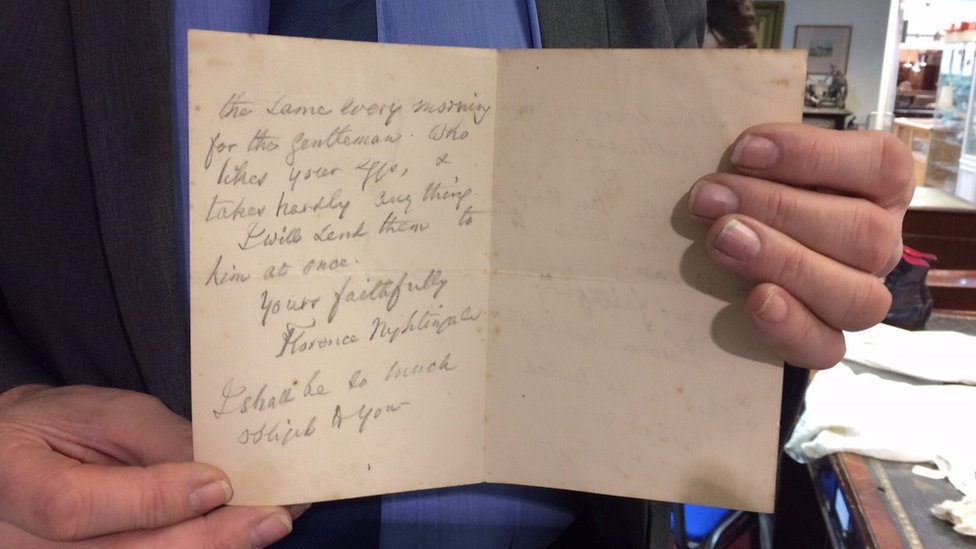 the same every morning
for the gentleman. Who
likes your eggs, &
takes hardly any thing.
I will send them to
him at once.
Yours faithfully
Florence Nightingale
I shall be so much
obliged to you